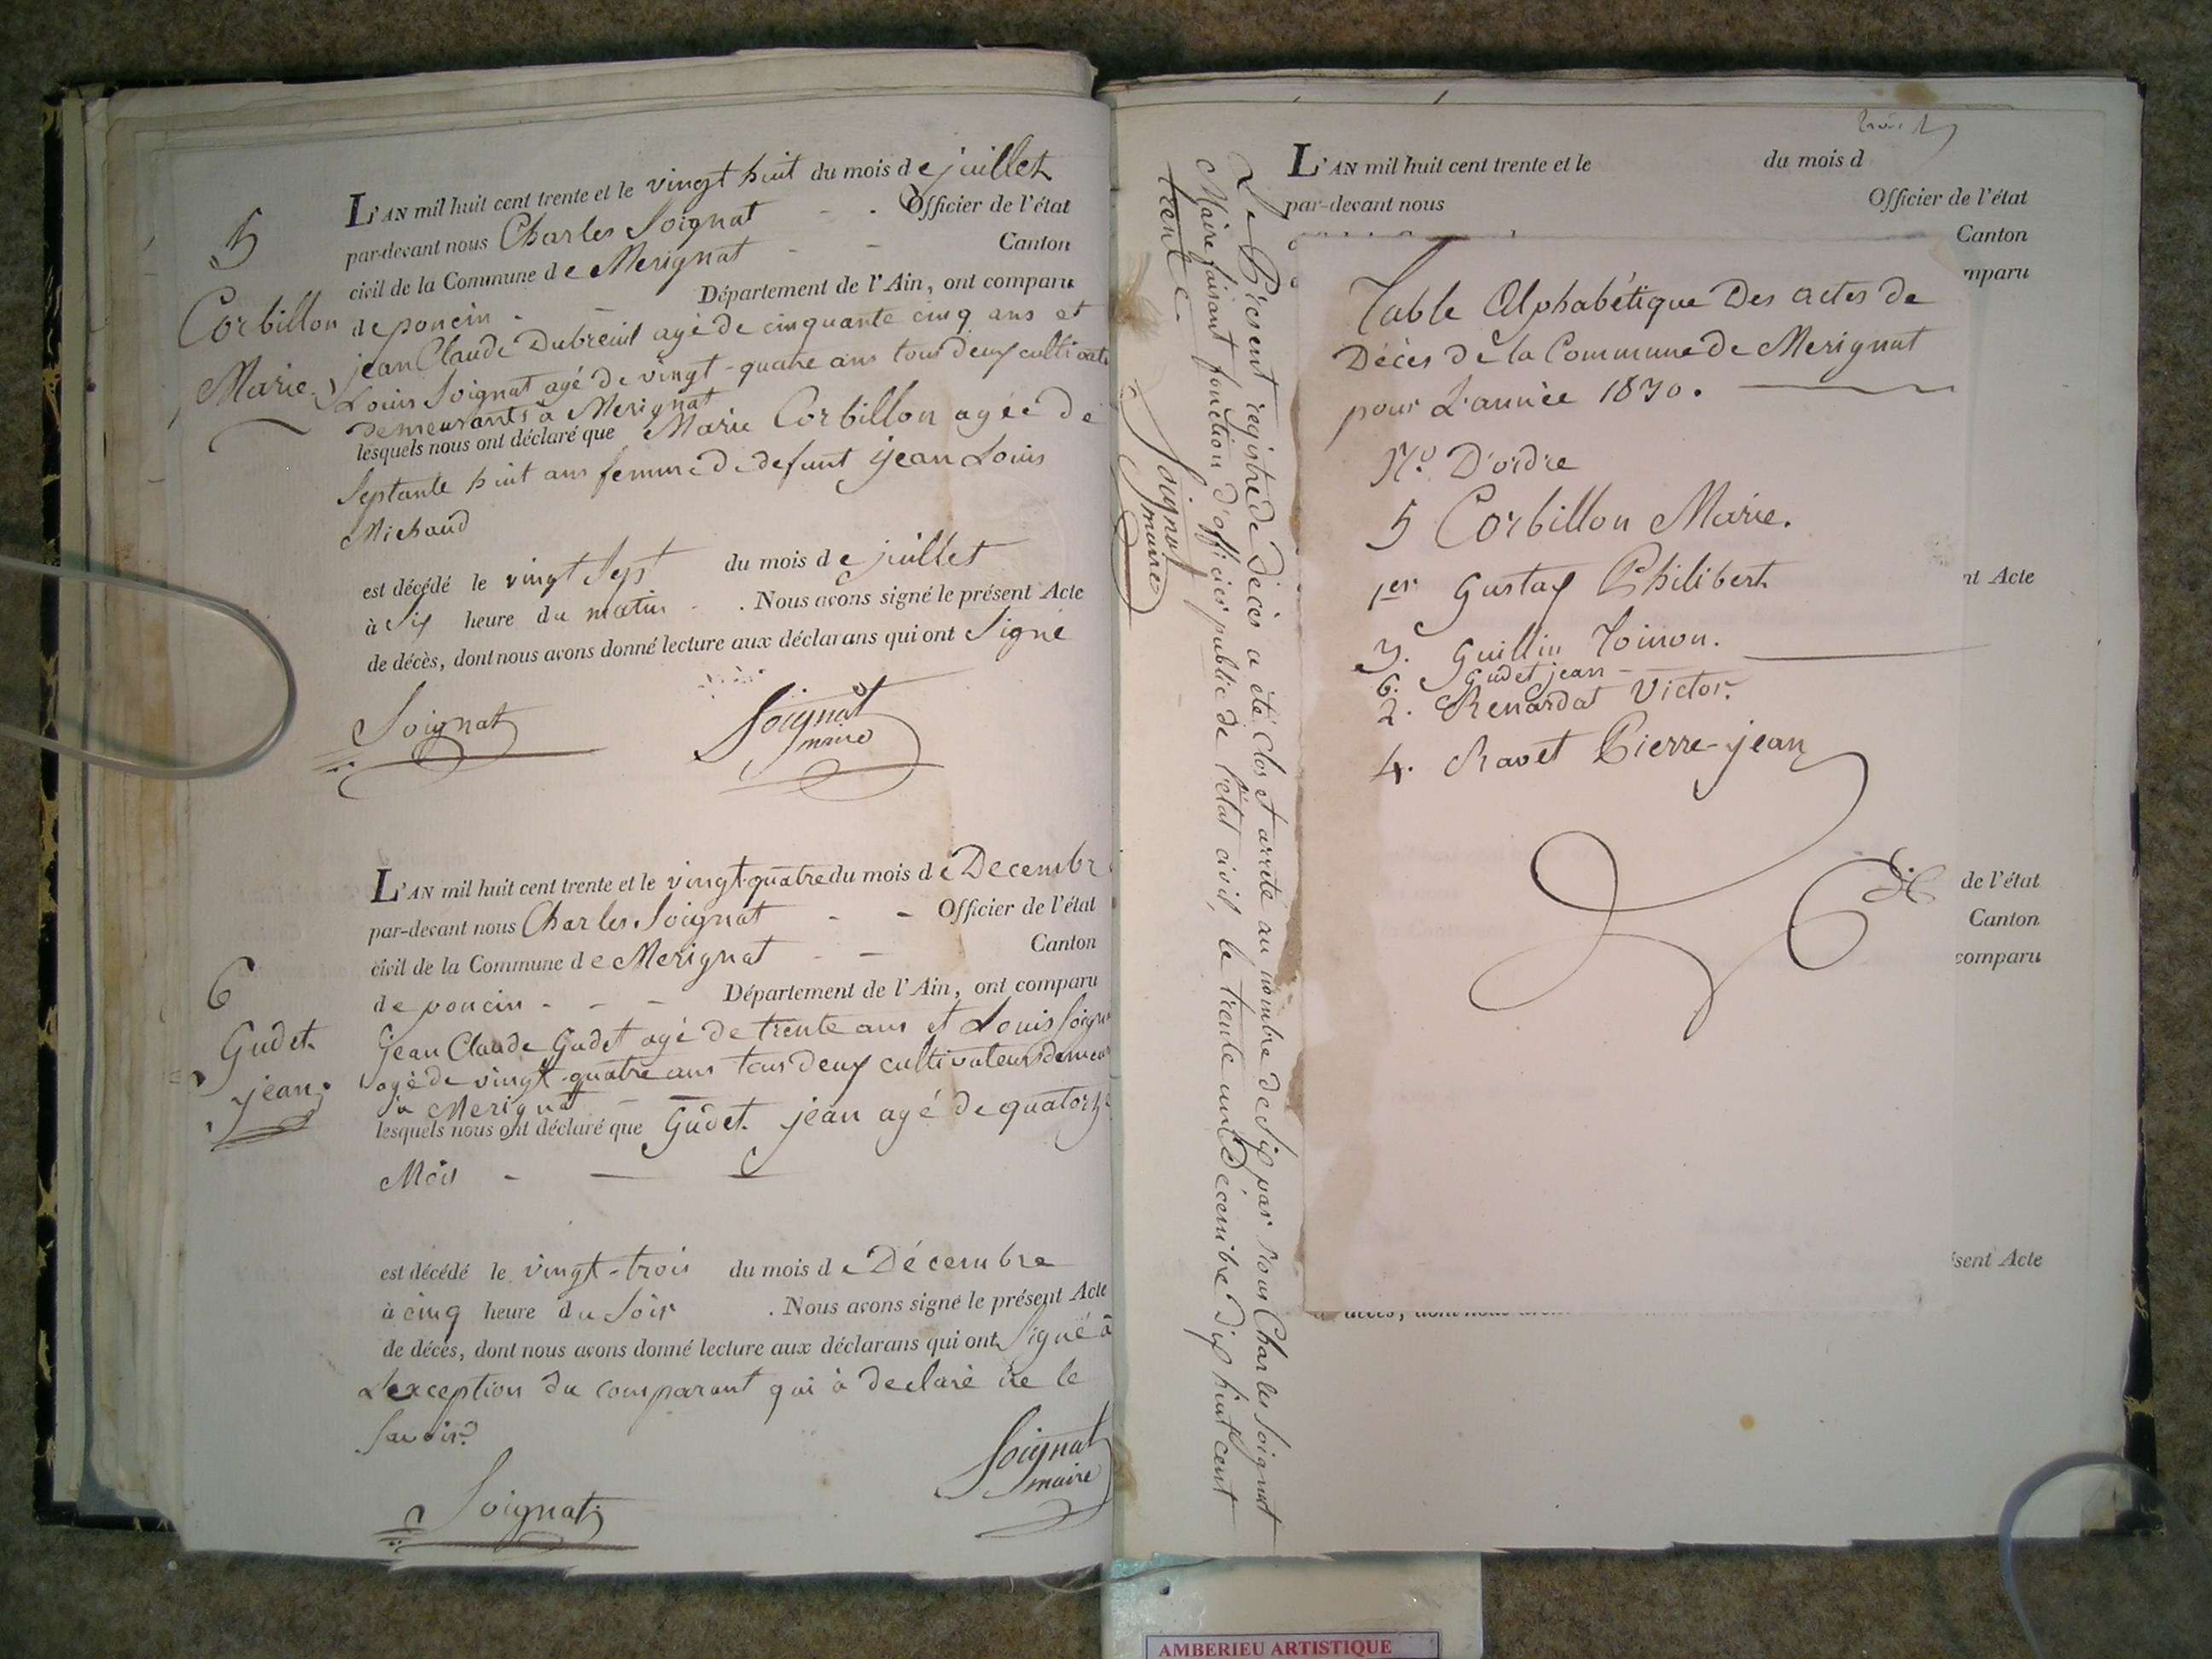 5
Corbillon
Marie.
L'AN mil huit cent trente et le vingt huit du mois de juillet
par-devant nous Charles Soignat - - Officier de l'état
civil de la Commune de Merignat - - Canton
de poncin - - Département de l'Ain, ont comparu
jean Claude Dubreuil agé de cinquante cinq ans et
Louis Soignat agé de vingt-quatre ans tous deux cultivate
demeurants à Merignat
lesquels nous ont déclaré que Marie Corbillon agée de
Septante huit ans femme de defunt jean Louis
Michaud
est décédé le vingt Sept du mois de juillet
à Six heure du matin - . Nous avons signé le présent Acte
de décès, dont nous avons donné lecture aux déclarans qui ont Signé
Soignat
Soignat
maire
6
Gudet.
jean.
L'AN mil huit cent trente et le vingt-quatre du mois de Decembr
par-devant nous Charles Soignat - - Officier de l'état
civil de la Commune de Merignat - - Canton
de poncin - - - Département de l'Ain, ont comparu
jean Claude Gudet agé de trente ans et Louis Soigna
agé de vingt-quatre ans tous deux cultivateurs demeur
à Merignat - -
lesquels nous ont déclaré que Gudet. jean agé de quatorze
Mois - - -
est décédé le vingt-trois du mois de Décembre
à cinq heure du Soir . Nous avons signé le présent Acte
de décès, dont nous avons donné lecture aux déclarans qui ont Signé à
L'exception du comparant qui à declaré ne le
Savoir
Soignat
Soignat
maire
Le Présent registre de Décès a été clos et arrêté au nombre de Six par Nous Charles Soignat
Maire faisant fonction d'officier public de l'état civil, le trente un Décembre Dix huit cent
trente.
Soignat
maire
L'AN mil huit cent trente et le du mois d
par-devant nous Officier de l'état
Canton
mparu
Table Alphabétique Des actes de
Décès de la Commune de Merignat
pour L'année 1830.
No. D'ordre
5 Corbillon Marie.
1er Gustaf Philibert
3. Guillin Toinon.
6. Gudet jean -
2. Renardat Victor.
4. Ravet Pierre-jean
nt Acte
de l'état
Canton
comparu
sent Acte
AMBERIEU ARTISTIQUE